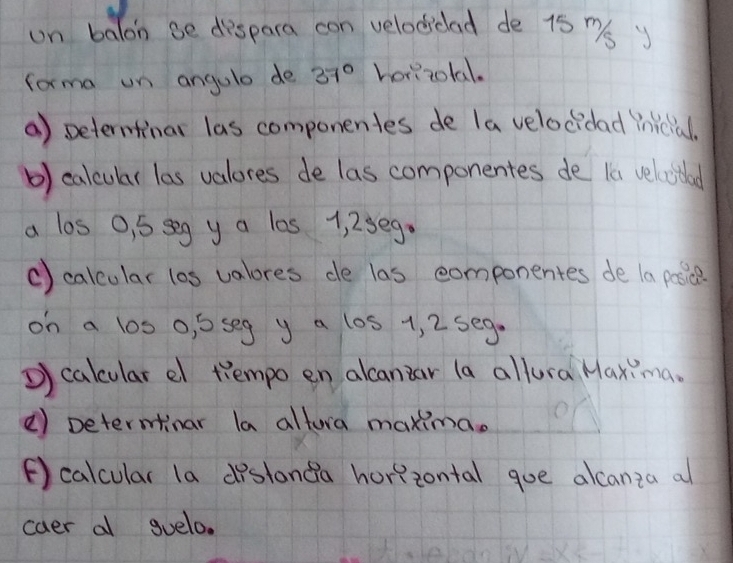 un balón se dispara con velocidad de 15 m/s y
forma un angulo de 37° horizotal.
a) Determinar las componentes de la velocidad inicial.
b) calcular las valores de las componentes de la velocidad
a los 0,5 seg y a los 1,2 seg.
c) calcular los valores de las componentes de la posici
on a los 0,5 seg y a los 1,2 seg.
D) calcular el tiempo en alcanzar la altura Maxima.
e) Determinar la altura maxima.
F) calcular la distancia horizontal que alcanza al
caer al suelo.